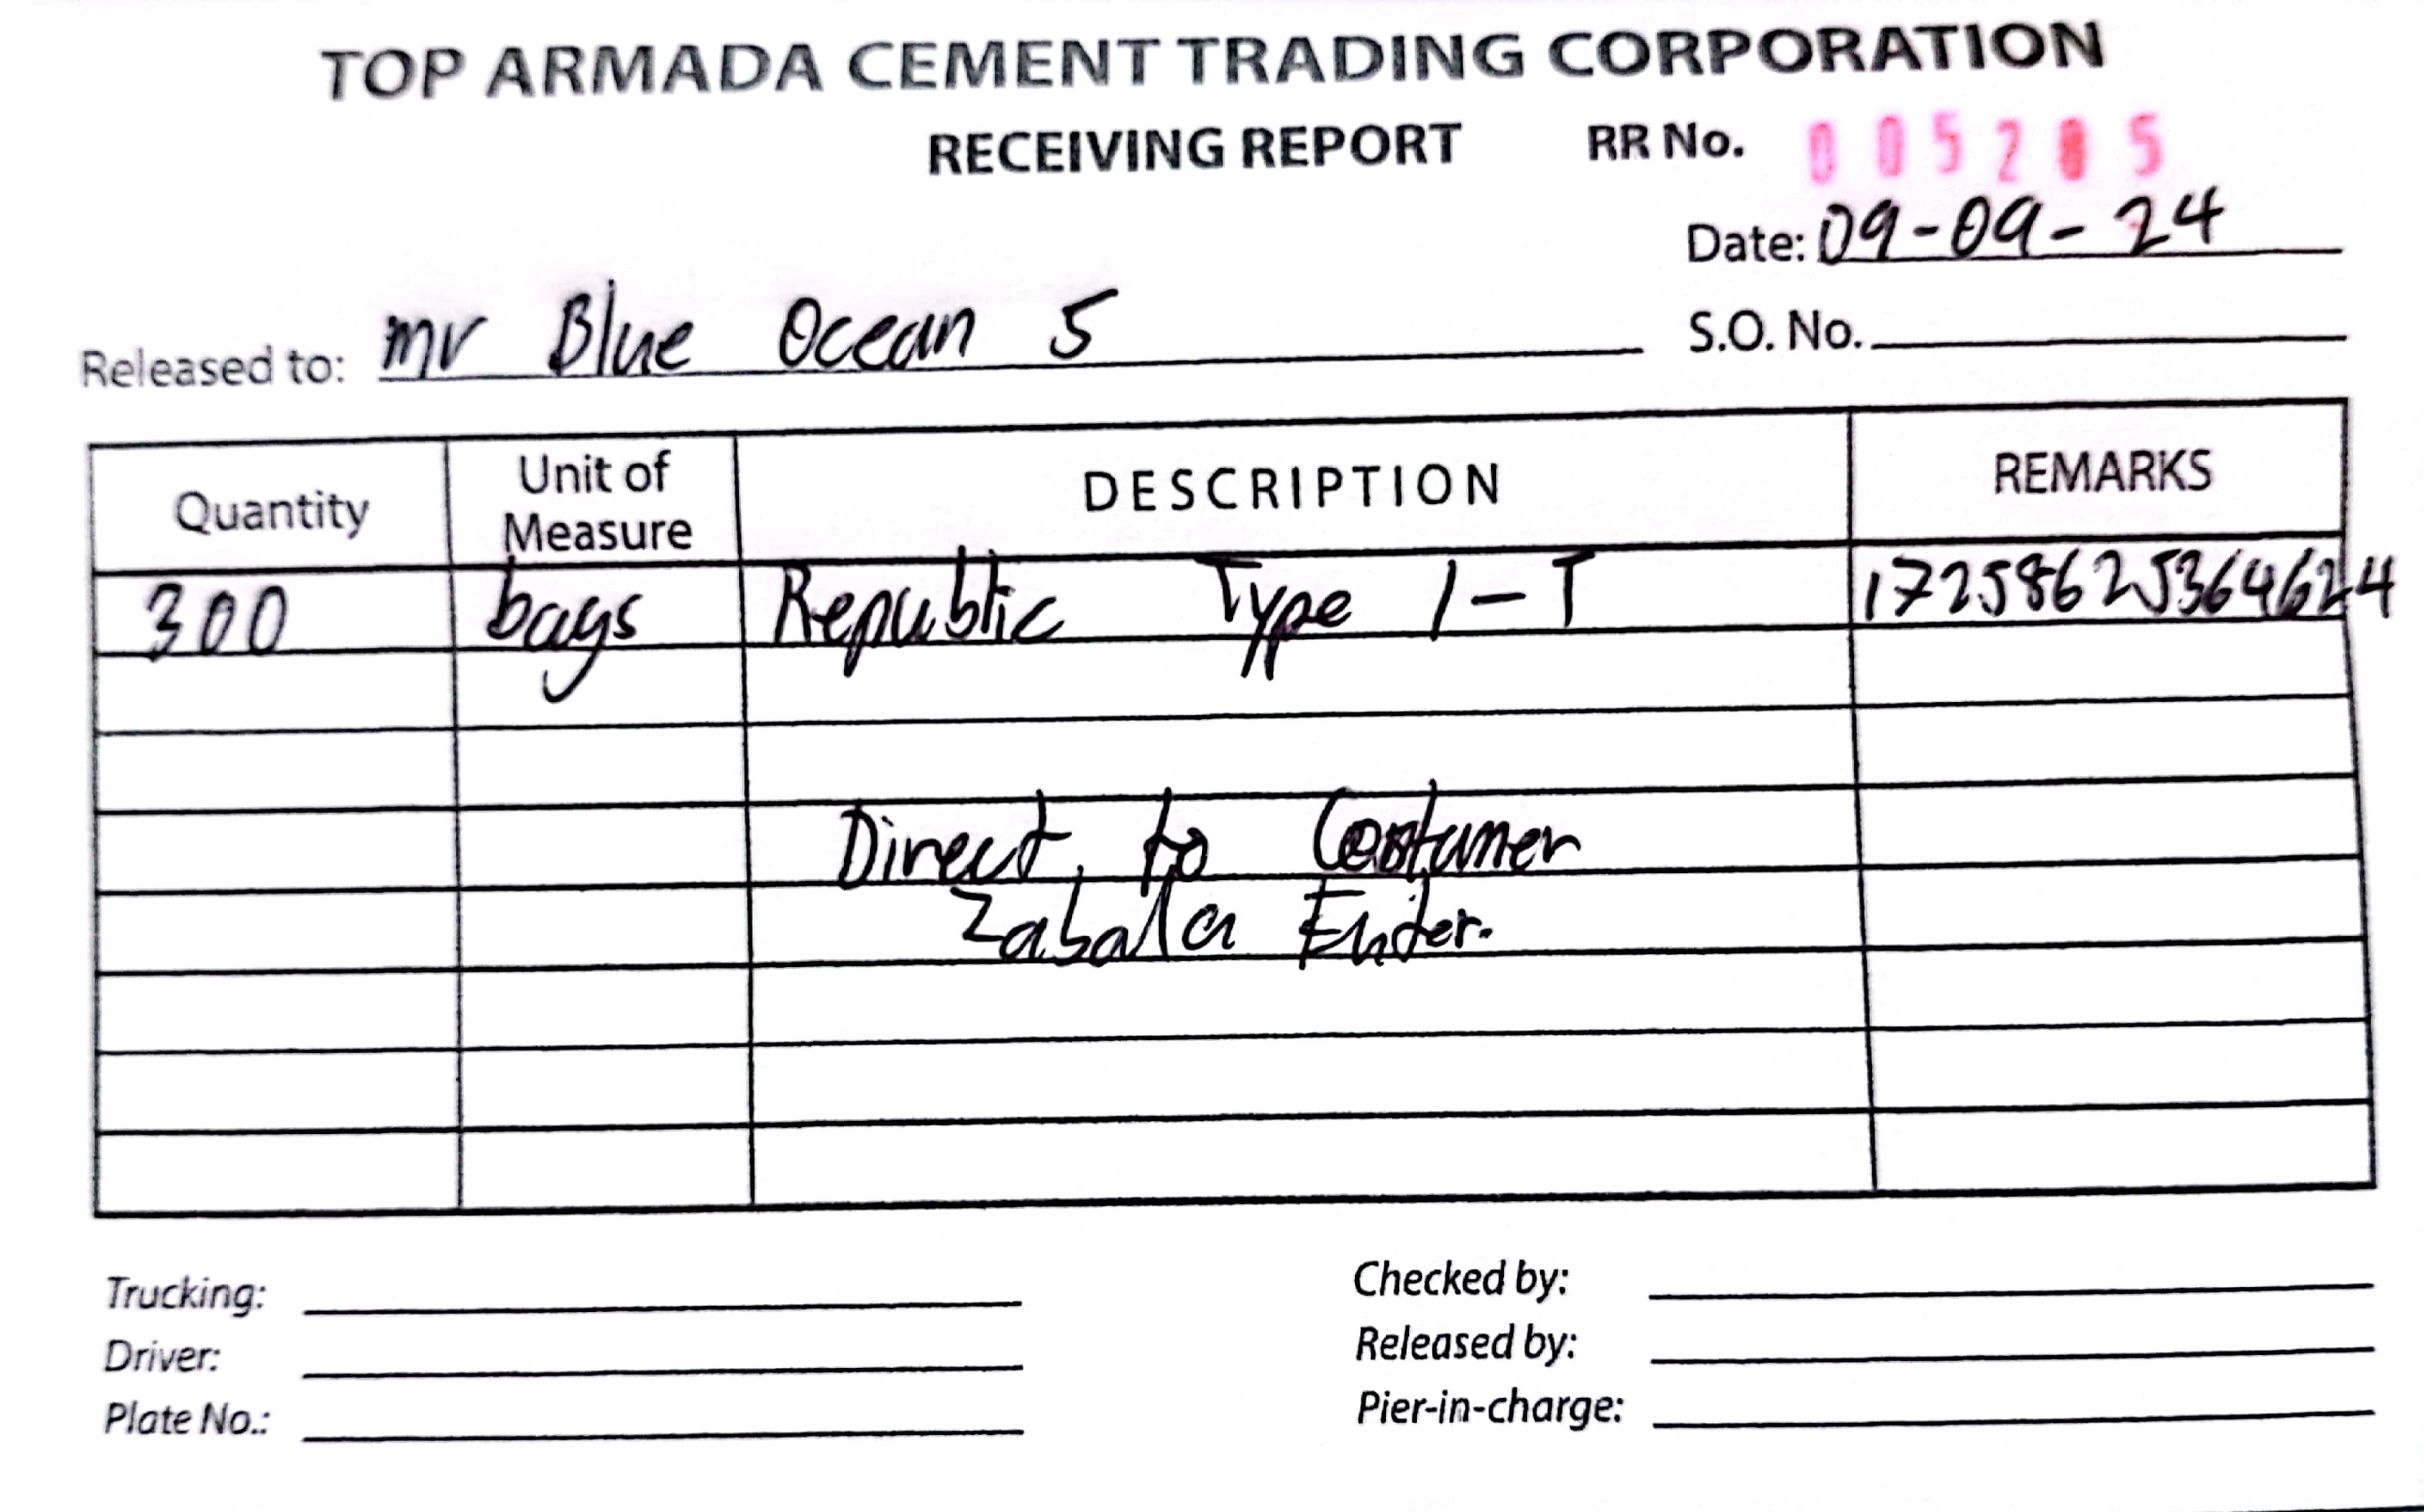 TOP ARMADA CEMENT TRADING CORPORATION
RECEIVING REPORT RR No. 005205
Date: 09-09-24
Released to: mv Blue Ocean 5 S.O. No.
Quantity Unit of Measure DESCRIPTION REMARKS
300 bags Republic Type 1-T 17258625364624
Direct to Costumer
Zabala Enter.
Trucking: Checked by:
Driver: Released by:
Plate No.: Pier-in-charge: